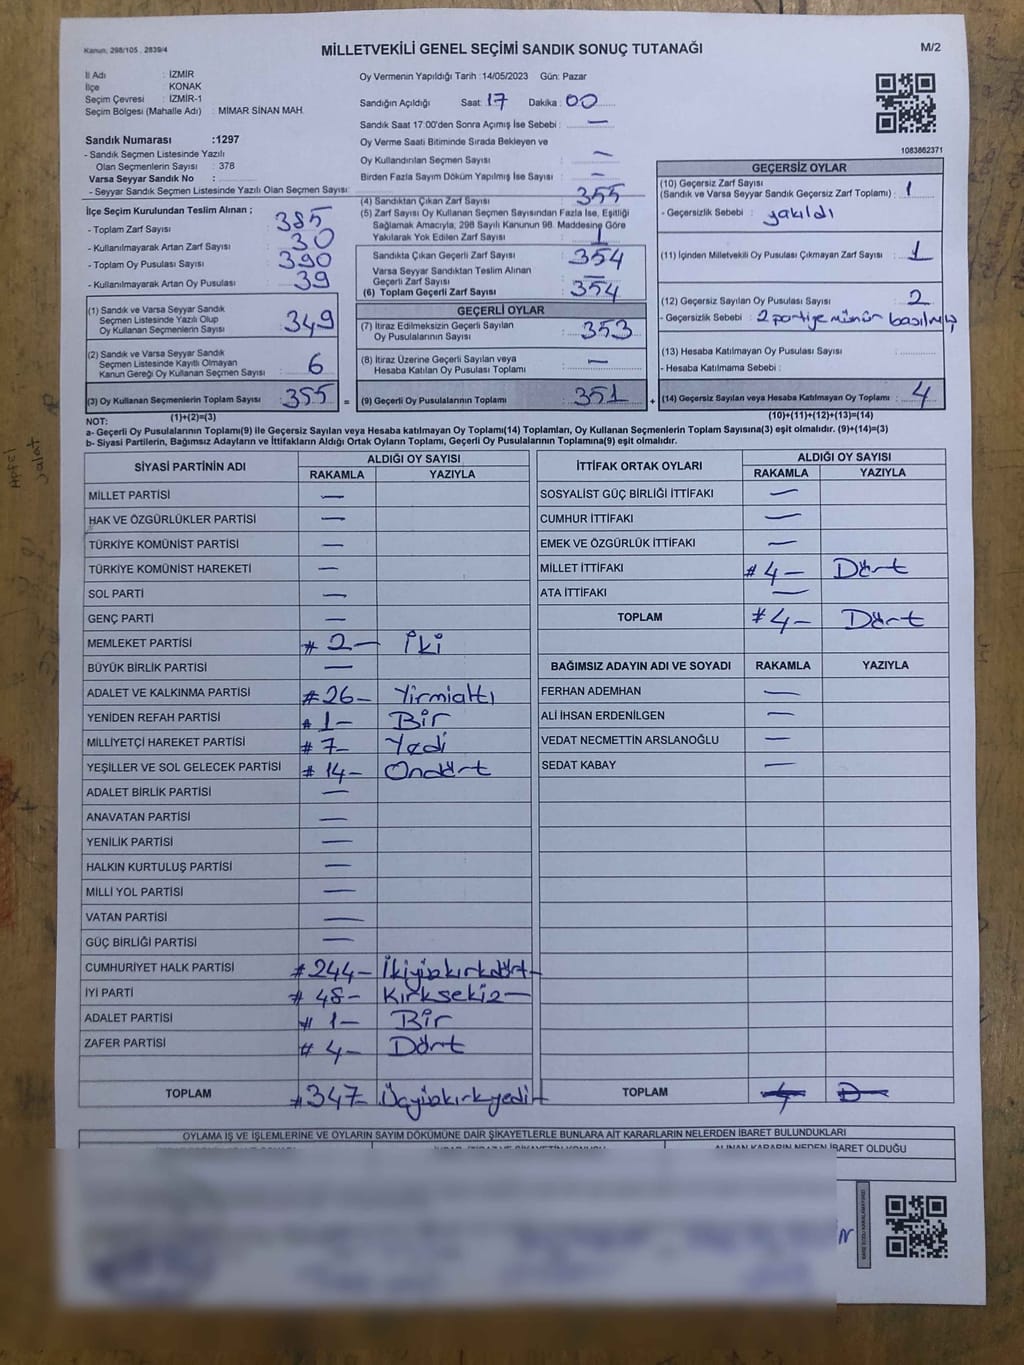 Kanun, 298/105 , 2839/4
MİLLETVEKİLİ GENEL SEÇİMİ SANDIK SONUÇ TUTANAĞI
M/2
İl Adı : İZMİR
İlçe : KONAK
Seçim Çevresi : İZMİR-1
Seçim Bölgesi (Mahalle Adı) : MİMAR SİNAN MAH.
Sandık Numarası :1297
- Sandık Seçmen Listesinde Yazılı
Olan Seçmenlerin Sayısı : 378
Varsa Seyyar Sandık No :
- Seyyar Sandık Seçmen Listesinde Yazılı Olan Seçmen Sayısı:
Oy Vermenin Yapıldığı Tarih :14/05/2023 Gün: Pazar
Sandığın Açıldığı Saat: 17 Dakika: 00
Sandık Saat 17:00'den Sonra Açımış İse Sebebi : —
Oy Verme Saati Bitiminde Sırada Bekleyen ve
Oy Kullandırılan Seçmen Sayısı : —
Birden Fazla Sayım Döküm Yapılmış İse Sayısı : —
1083862371
İlçe Seçim Kurulundan Teslim Alınan ;
- Toplam Zarf Sayısı : 385
- Kullanılmayarak Artan Zarf Sayısı : 30
- Toplam Oy Pusulası Sayısı : 390
- Kullanılmayarak Artan Oy Pusulası : 39
(1) Sandık ve Varsa Seyyar Sandık
Seçmen Listesinde Yazılı Olup
Oy Kullanan Seçmenlerin Sayısı : 349
(2) Sandık ve Varsa Seyyar Sandık
Seçmen Listesinde Kayıtlı Olmayan
Kanun Gereği Oy Kullanan Seçmen Sayısı : 6
(3) Oy Kullanan Seçmenlerin Toplam Sayısı : 355
(1)+(2)=(3)
(4) Sandıktan Çıkan Zarf Sayısı : 355
(5) Zarf Sayısı Oy Kullanan Seçmen Sayısından Fazla İse, Eşitliği
Sağlamak Amacıyla, 298 Sayılı Kanunun 98. Maddesine Göre
Yakılarak Yok Edilen Zarf Sayısı : 1
Sandıkta Çıkan Geçerli Zarf Sayısı : 354
Varsa Seyyar Sandıktan Teslim Alınan
Geçerli Zarf Sayısı : —
(6) Toplam Geçerli Zarf Sayısı : 354
GEÇERLİ OYLAR
(7) İtiraz Edilmeksizin Geçerli Sayılan
Oy Pusulalarının Sayısı : 353
(8) İtiraz Üzerine Geçerli Sayılan veya
Hesaba Katılan Oy Pusulası Toplamı : —
= (9) Geçerli Oy Pusulalarının Toplamı : 351 +
GEÇERSİZ OYLAR
(10) Geçersiz Zarf Sayısı
(Sandık ve Varsa Seyyar Sandık Geçersiz Zarf Toplamı) : 1
- Geçersizlik Sebebi : yakıldı
(11) İçinden Milletvekili Oy Pusulası Çıkmayan Zarf Sayısı : 1
(12) Geçersiz Sayılan Oy Pusulası Sayısı : 2
- Geçersizlik Sebebi : 2 partiye mühür basılmış
(13) Hesaba Katılmayan Oy Pusulası Sayısı :
- Hesaba Katılmama Sebebi :
(14) Geçersiz Sayılan veya Hesaba Katılmayan Oy Toplamı : 4
(10)+(11)+(12)+(13)=(14)
NOT:
a- Geçerli Oy Pusulalarının Toplamı(9) ile Geçersiz Sayılan veya Hesaba katılmayan Oy Toplamı(14) Toplamları, Oy Kullanan Seçmenlerin Toplam Sayısına(3) eşit olmalıdır. (9)+(14)=(3)
b- Siyasi Partilerin, Bağımsız Adayların ve İttifakların Aldığı Ortak Oyların Toplamı, Geçerli Oy Pusulalarının Toplamına(9) eşit olmalıdır.
SİYASİ PARTİNİN ADI ALDIĞI OY SAYISI
RAKAMLA YAZIYLA
MİLLET PARTİSİ —
HAK VE ÖZGÜRLÜKLER PARTİSİ —
TÜRKİYE KOMÜNİST PARTİSİ —
TÜRKİYE KOMÜNİST HAREKETİ —
SOL PARTİ —
GENÇ PARTİ —
MEMLEKET PARTİSİ # 2— İki
BÜYÜK BİRLİK PARTİSİ —
ADALET VE KALKINMA PARTİSİ #26— Yirmialtı
YENİDEN REFAH PARTİSİ # 1— Bir
MİLLİYETÇİ HAREKET PARTİSİ # 7— Yedi
YEŞİLLER VE SOL GELECEK PARTİSİ # 14— Ondört
ADALET BİRLİK PARTİSİ —
ANAVATAN PARTİSİ —
YENİLİK PARTİSİ —
HALKIN KURTULUŞ PARTİSİ —
MİLLİ YOL PARTİSİ —
VATAN PARTİSİ —
GÜÇ BİRLİĞİ PARTİSİ —
CUMHURİYET HALK PARTİSİ #244— İkiyüzkırkdört—
İYİ PARTİ # 48— Kırksekiz—
ADALET PARTİSİ # 1— Bir
ZAFER PARTİSİ # 4— Dört
TOPLAM #347— Üçyüzkırkyedi—
İTTİFAK ORTAK OYLARI ALDIĞI OY SAYISI
RAKAMLA YAZIYLA
SOSYALİST GÜÇ BİRLİĞİ İTTİFAKI —
CUMHUR İTTİFAKI —
EMEK VE ÖZGÜRLÜK İTTİFAKI —
MİLLET İTTİFAKI #4— Dört
ATA İTTİFAKI —
TOPLAM #4— Dört
BAĞIMSIZ ADAYIN ADI VE SOYADI RAKAMLA YAZIYLA
FERHAN ADEMHAN —
ALİ İHSAN ERDENİLGEN —
VEDAT NECMETTİN ARSLANOĞLU —
SEDAT KABAY —
TOPLAM 4 D
OYLAMA İŞ VE İŞLEMLERİNE VE OYLARIN SAYIM DÖKÜMÜNE DAİR ŞİKAYETLERLE BUNLARA AİT KARARLARIN NELERDEN İBARET BULUNDUKLARI
ALINAN KARARIN NEDEN İBARET OLDUĞU